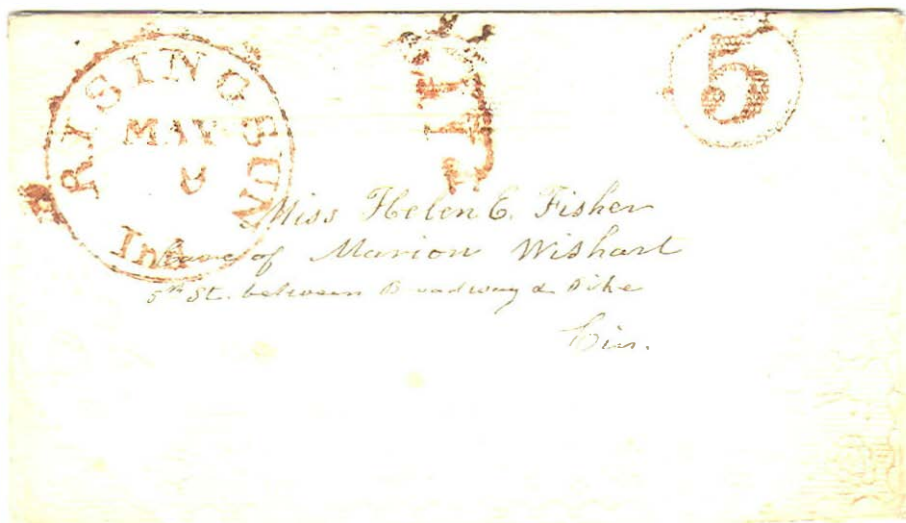 RISING SUN
MAY
IñA
PAID
5
Miss Helen E. Fisher
Care of Marion Wishart
5th St. between Broadway & Pike
Cin.